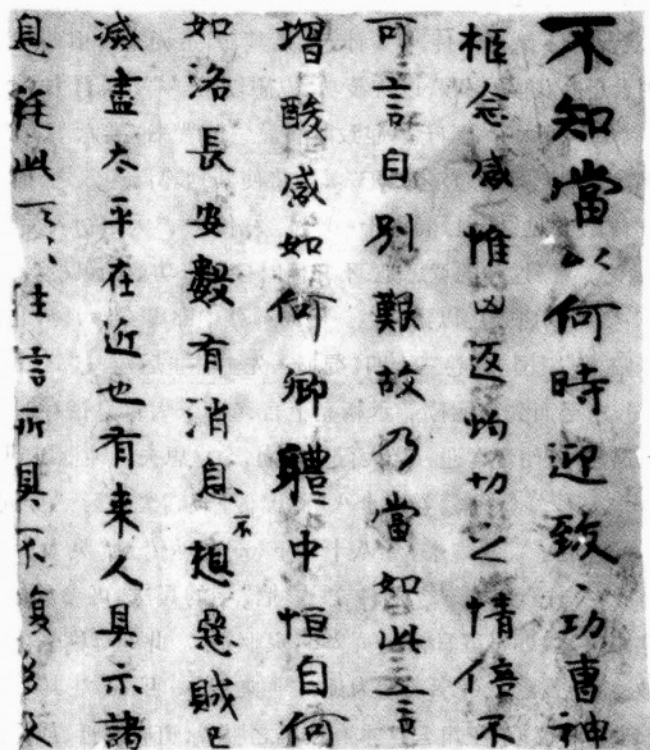 不知當以何時迎致功曹神
柩念感惟凶返灼切之情倍不
可言自別艱故乃當如此言
增酸感如何卿體中恒自何
如洛長安數有消息不想惡賊已
滅盡太平在近也有来人具示諸
息耗此往言所具不復多及